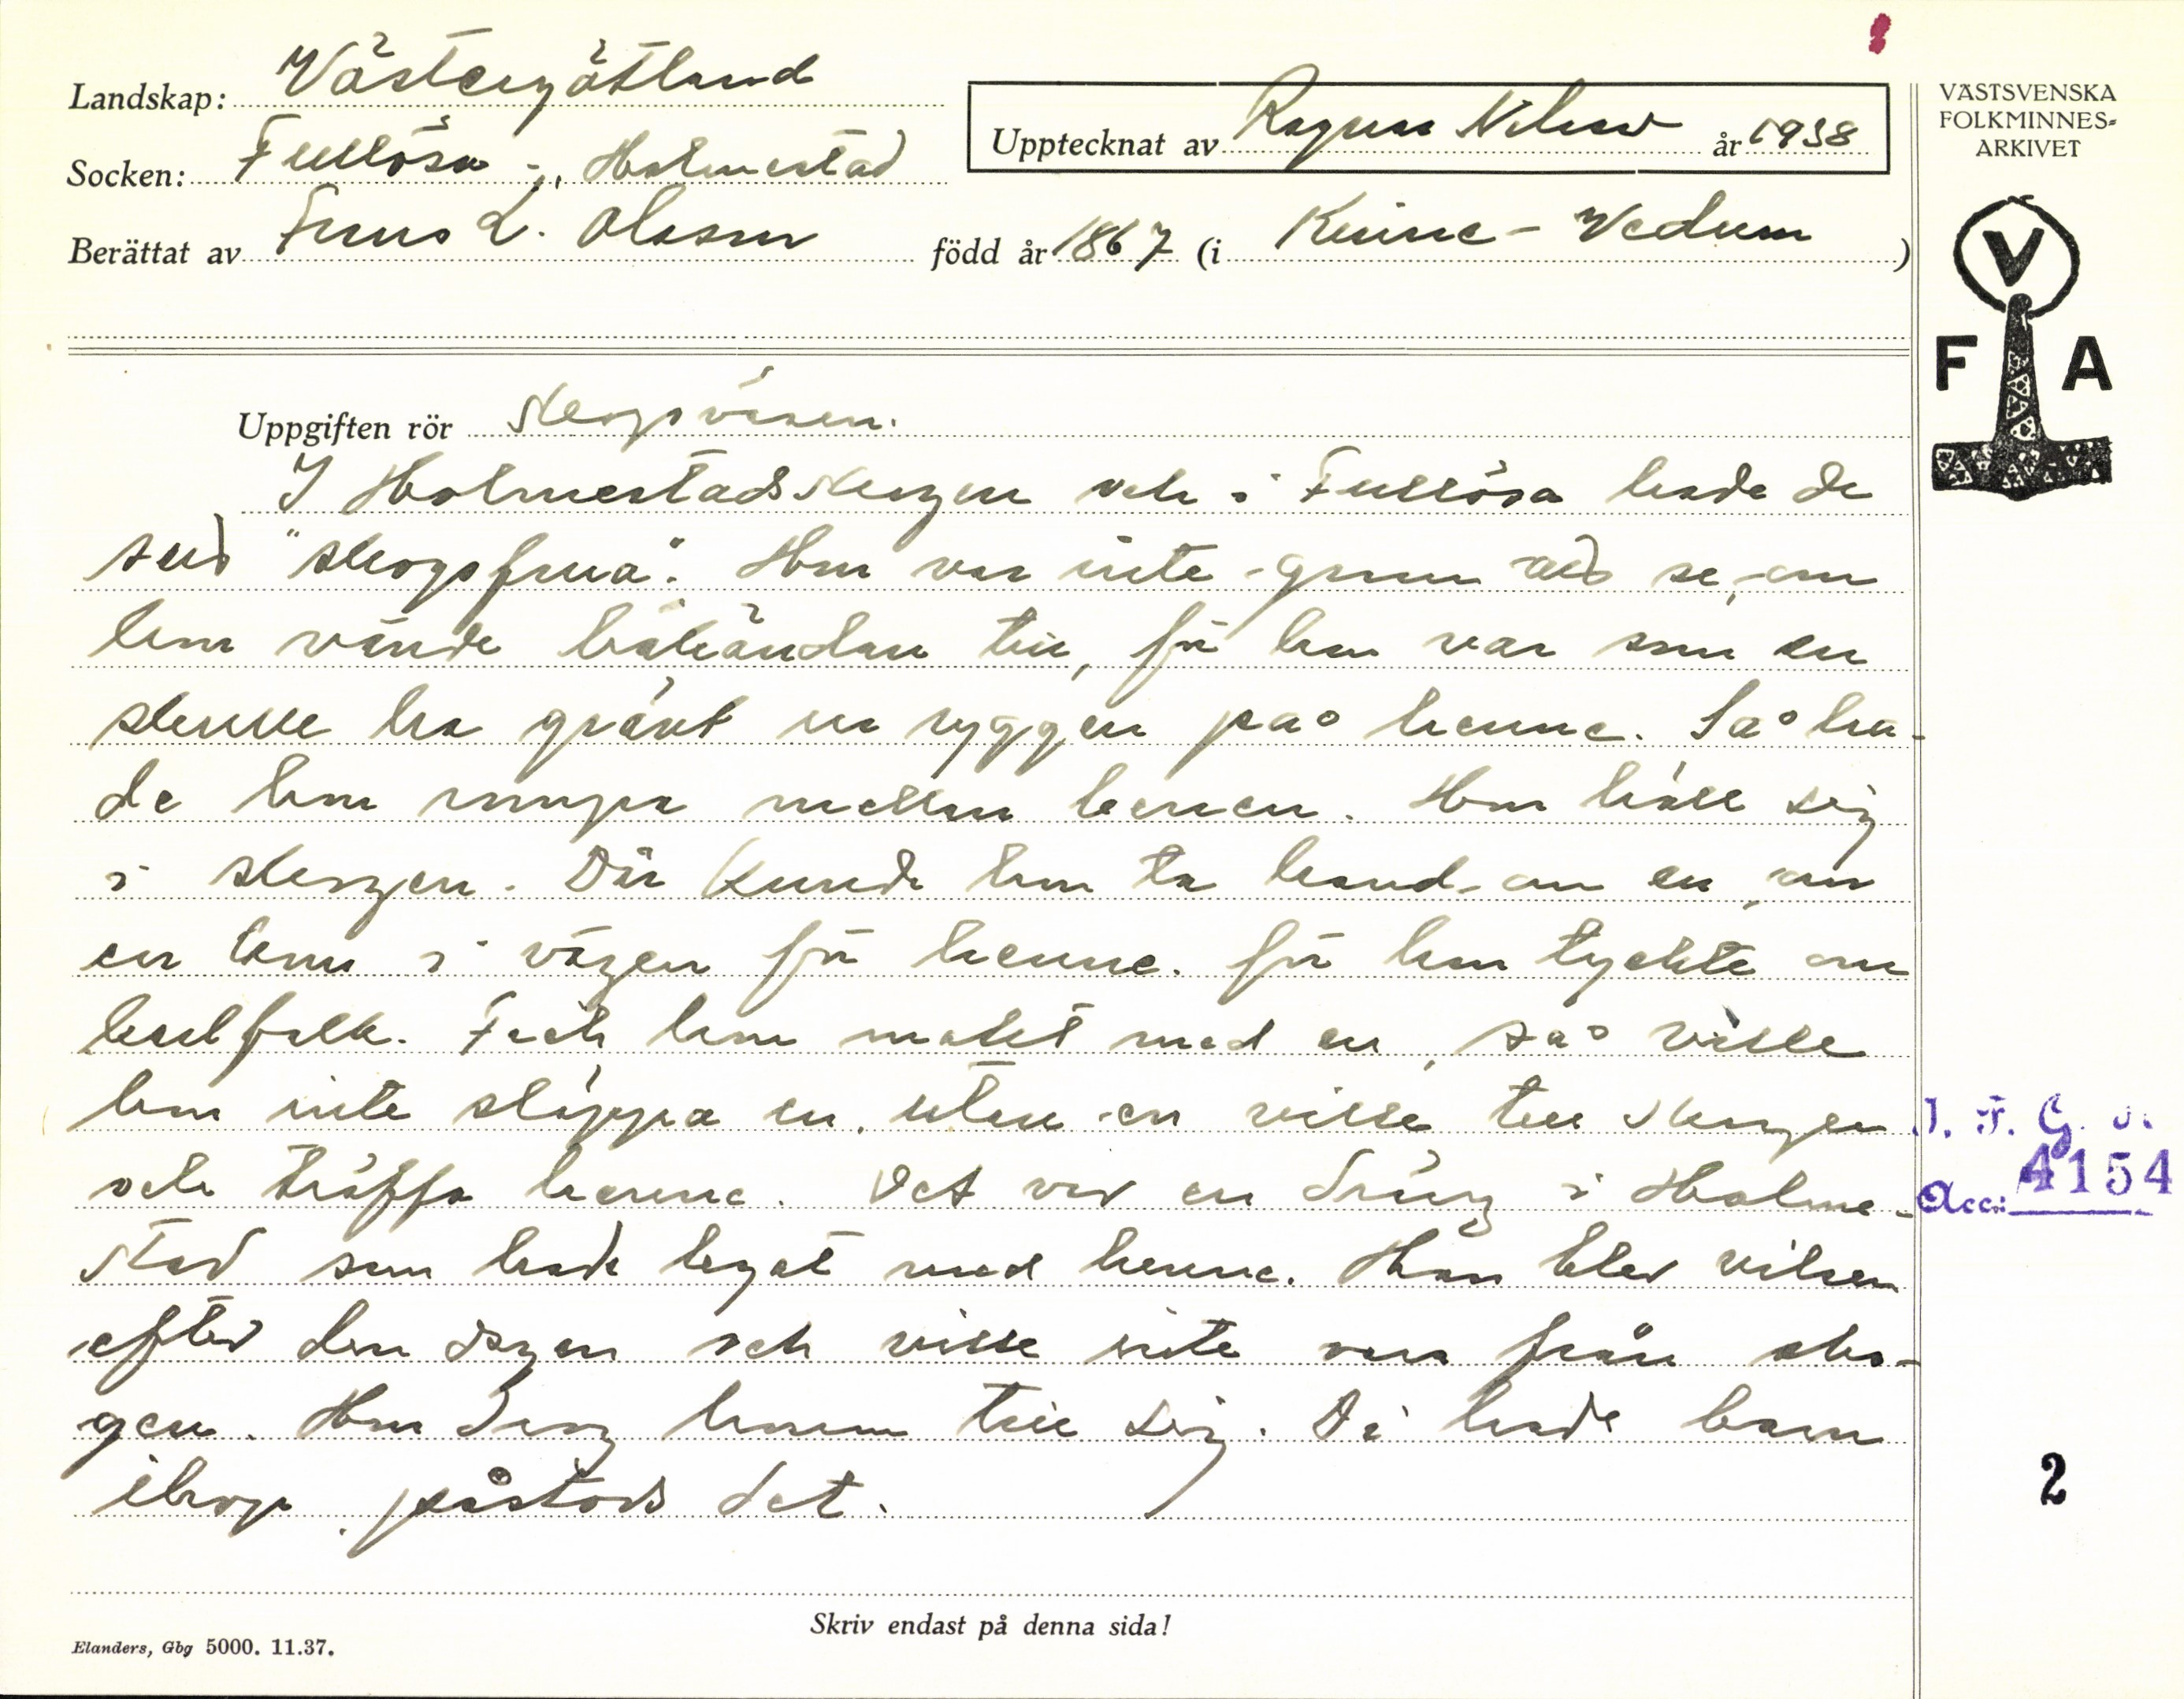 Landskap: Västergötland
Socken: Fullösa - , Holmestad
Upptecknat av Ragnar Nilsson år 1938
Berättat av Frans L. Olsson född år 1867 (i Kinne-Vedum )
VÄSTSVENSKA
FOLKMINNES-
ARKIVET
V
F A
Uppgiften rör Skogsväsen.
I Holmestadsskogen och i Fullösa hade de
sett "skogsfrua". Hon var inte grann att se, om
hon vände bakändan till, för hon var som en
skulle ha grävt ur ryggen på henne. Så ha-
de hon rumpa mellan benen. Hon höll sig
i skogen. Där kunde hon ta hand om en, om
en kom i vägen för henne. för hon tyckte om
karlfolk. Feck hon makt med en, så ville
hon inte släppa en, utan en ville till skogen
och träffa henne. Det var en dräng i Holme-
stad som hade legat med henne. Han blev vilsen
efter den dagen och ville inte vara från sko-
gen. Hon drog honom till sig. Di hade barn
ihop, påstods det.
I. F. G. H.
Acc: 4154
2
Skriv endast på denna sida!
Elanders, Gbg 5000. 11.37.